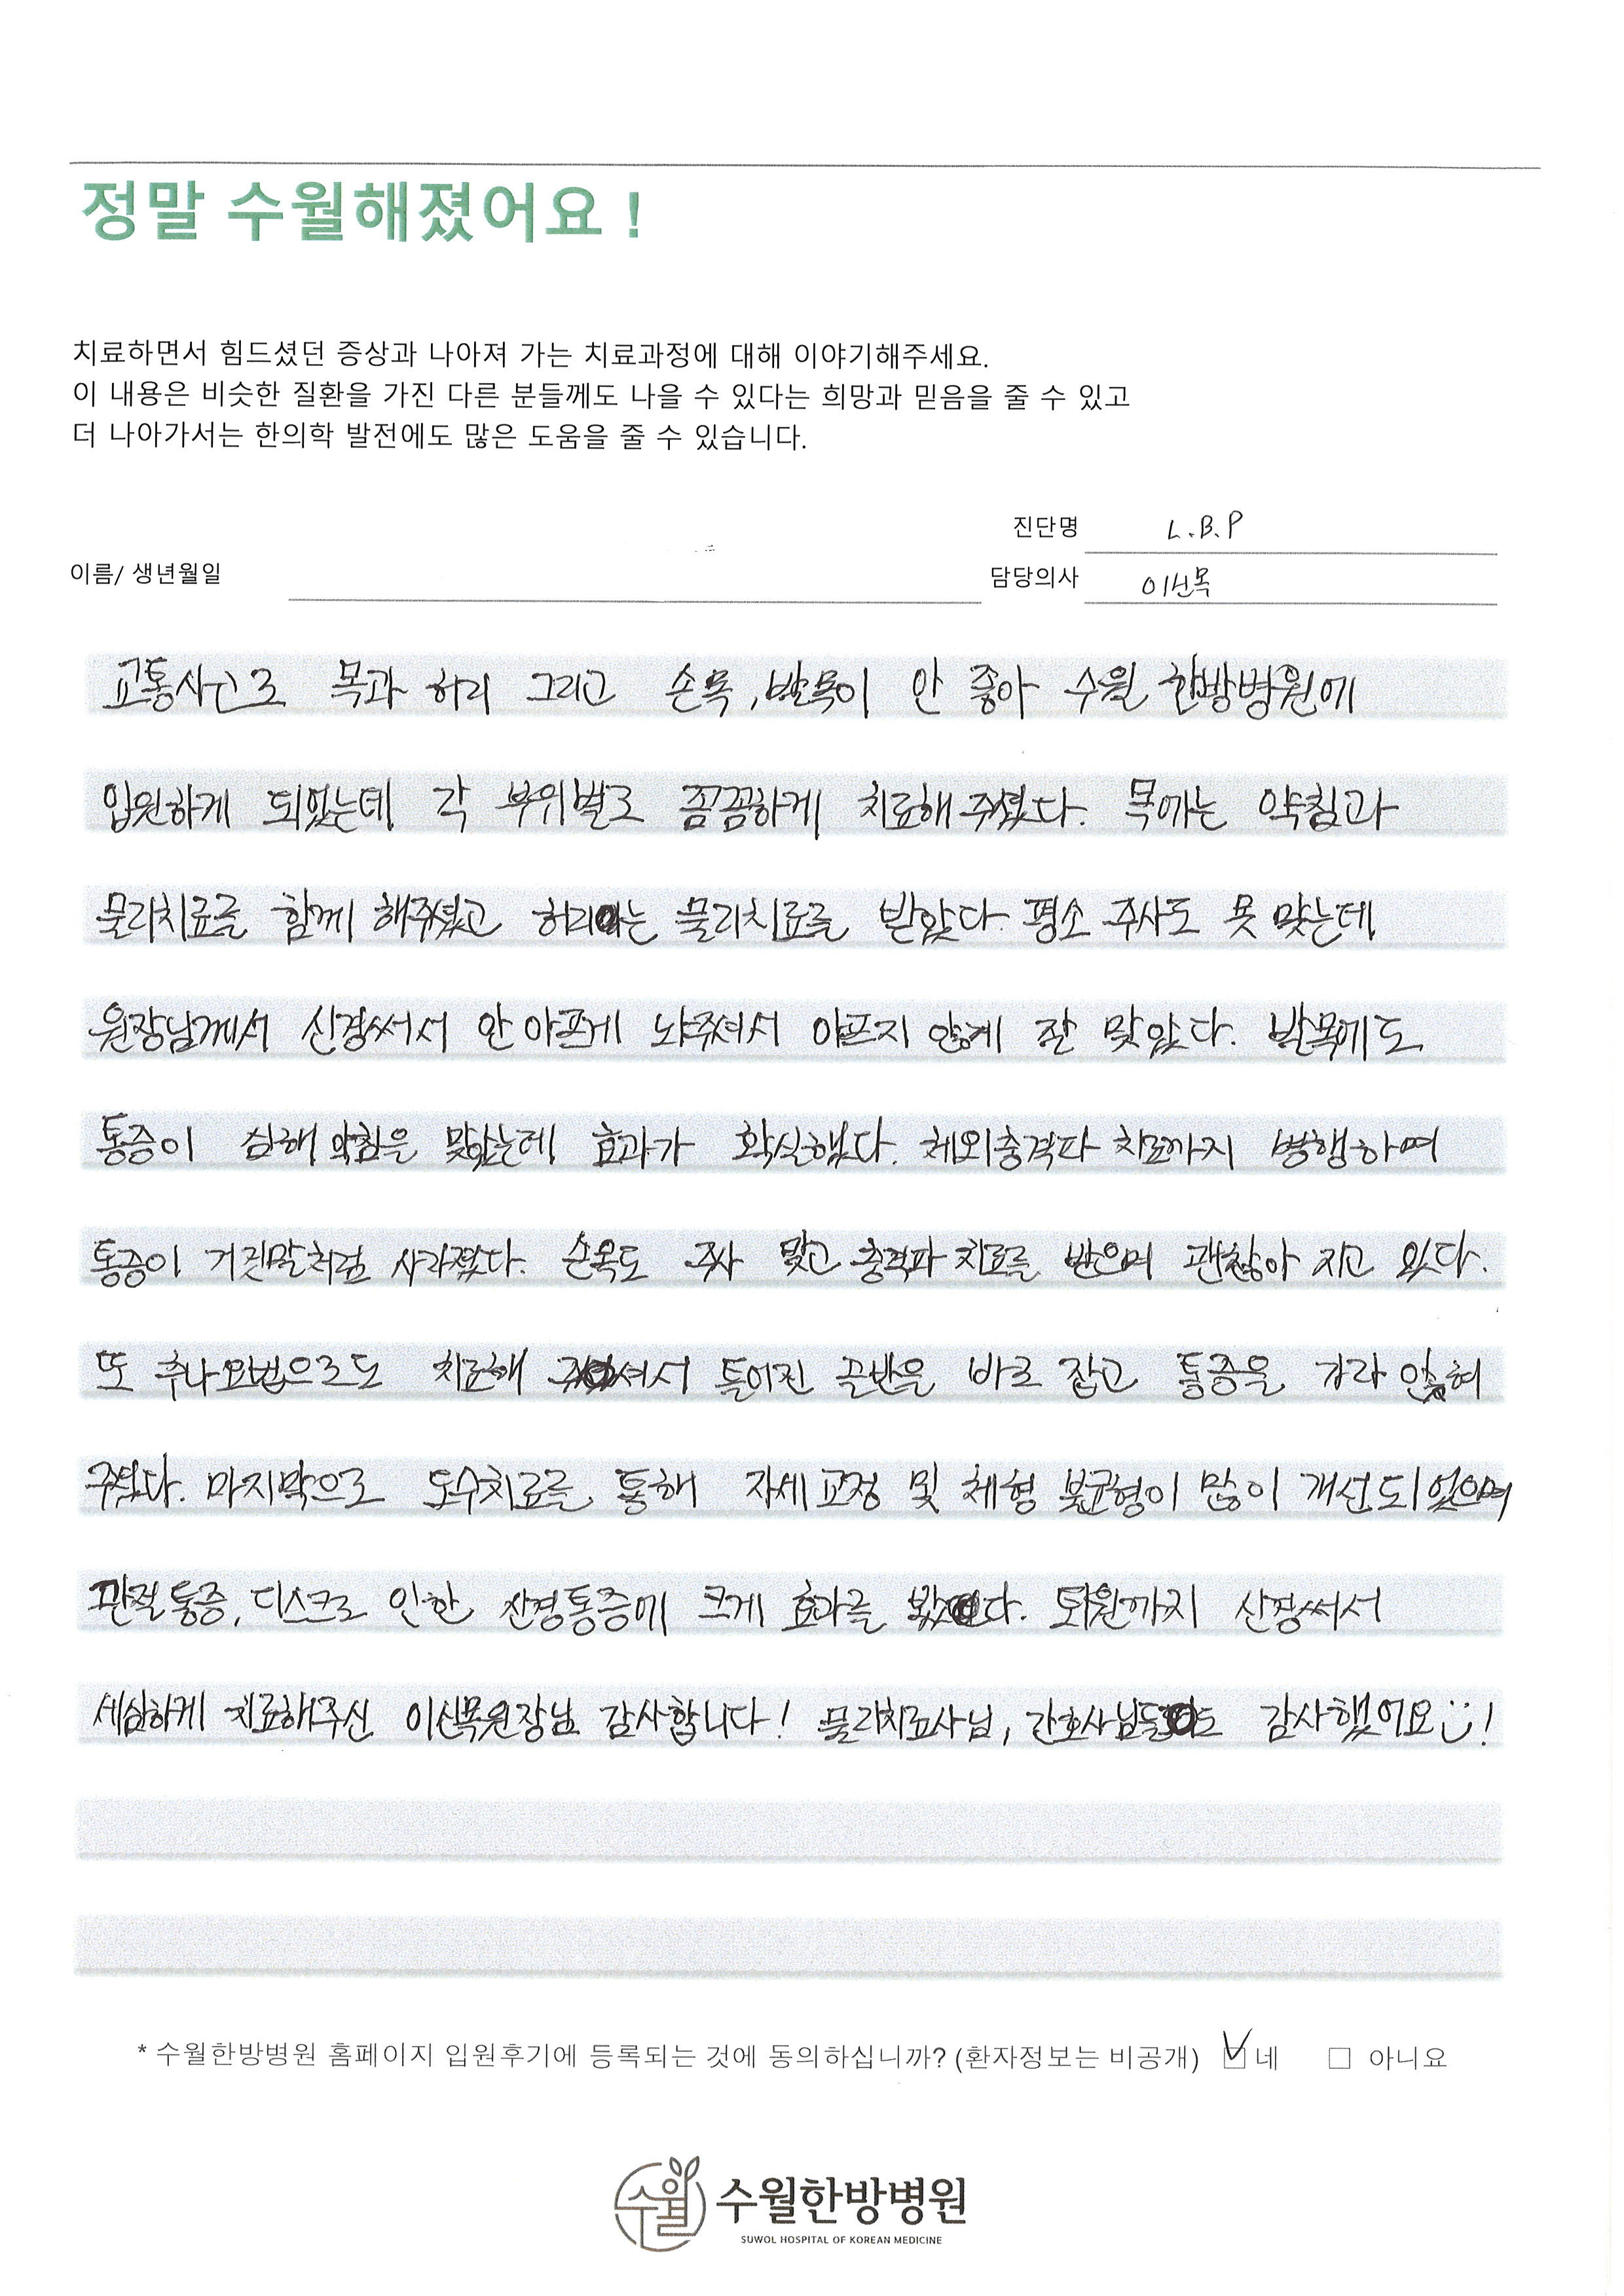 정말 수월해졌어요 !
치료하면서 힘드셨던 증상과 나아져 가는 치료과정에 대해 이야기해주세요.
이 내용은 비슷한 질환을 가진 다른 분들께도 나을 수 있다는 희망과 믿음을 줄 수 있고
더 나아가서는 한의학 발전에도 많은 도움을 줄 수 있습니다.
진단명 L.B.P
이름/ 생년월일 담당의사 이신목
교통사고로 목과 허리 그리고 손목, 발목이 안 좋아 수월 한방병원에
입원하게 되었는데 각 부위별로 꼼꼼하게 치료해 주셨다. 목에는 약침과
물리치료를 함께 해주셨고 허리는 물리치료를 받았다. 평소 주사도 못 맞는데
원장님께서 신경써서 안 아프게 놔주셔서 아프지 않게 잘 맞았다. 발목에도
통증이 심해 약침을 맞았는데 효과가 확실했다. 체외충격파 치료까지 병행하며
통증이 거짓말처럼 사라졌다. 손목도 주사 맞고 충격파 치료를 받으며 괜찮아 지고 있다.
또 추나요법으로도 치료해 주셔서 틀어진 골반을 바로 잡고 통증을 가라 앉혀
주셨다. 마지막으로 도수치료를 통해 자세 교정 및 체형 불균형이 많이 개선되었으며
관절통증, 디스크로 인한 신경통증에 크게 효과를 봤다. 퇴원까지 신경써서
세심하게 치료해주신 이신목원장님 감사합니다! 물리치료사님, 간호사님들도 감사했어요:)!
* 수월한방병원 홈페이지 입원후기에 등록되는 것에 동의하십니까? (환자정보는 비공개) ☑ 네 □ 아니요
수월 수월한방병원
SUWOL HOSPITAL OF KOREAN MEDICINE